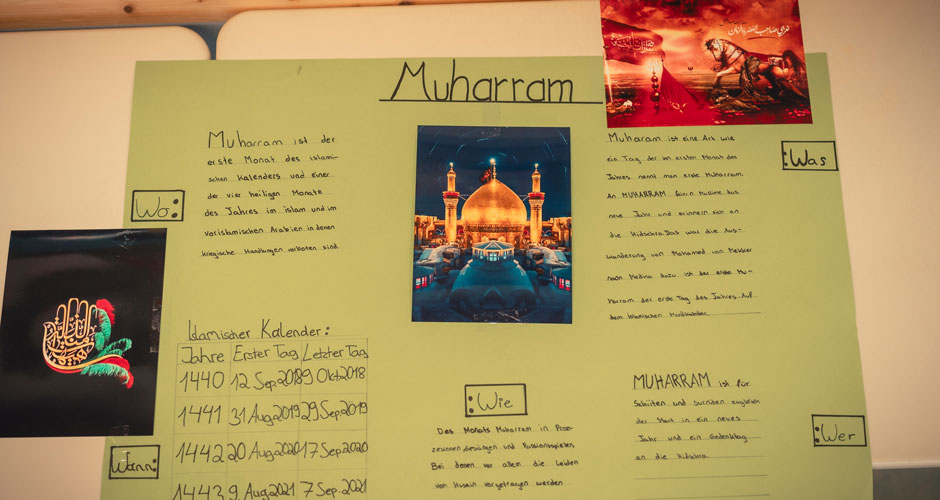 Muharram
Muharram ist der
erste Monat des islami-
schen Kalenders und einer
der vier heiligen Monate
des Jahres im islam und im
vorislamischen Arabien in denen
kriegische Handlungen verboten sind
Wo:
Muharam ist eine Art wie
ein Tag der im ersten Monat des
Jahres nennt man erste Muharram.
An MUHARRAM feiern Muslime das
neue Jahr und erinnern sich an
die Hidschra. Das war die Aus-
wanderung von Mohamed von Mekka
nach Medina dazu ist der erste Mu-
harram der erste Tag des Jahres. Auf
dem islamischen
:Was
Islamischer Kalender:
Jahre Erster Tag Letzter Tag
1440 12 Sep.2018 9 Okt2018
1441 31 Aug2019 29 Sep.2019
1442 20 Aug2020 17 Sep2020
1443 9 Aug2021 7 Sep.2021
Wann:
:Wie
Des Monats Muharram in Proz-
zesionen, gesängen und Passionsspielen,
Bei denen vor allem die Leiden
von Husein vorgetragen werden
MUHARRAM ist für
Schiiten und Sunniten zugleich
der Start in ein neues
Jahr und ein Gedenktag
an die Hidschra
:Wer